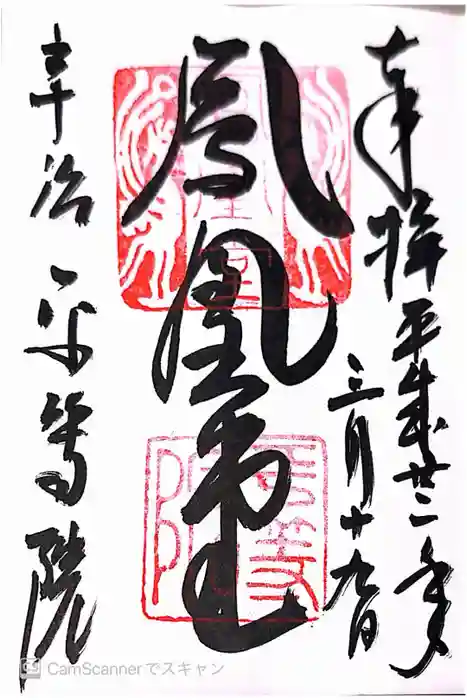 奉拝 平成廿二年
三月十九日
鳳凰堂
宇治 平等院
鳳凰堂
平等院
CamScannerでスキャン